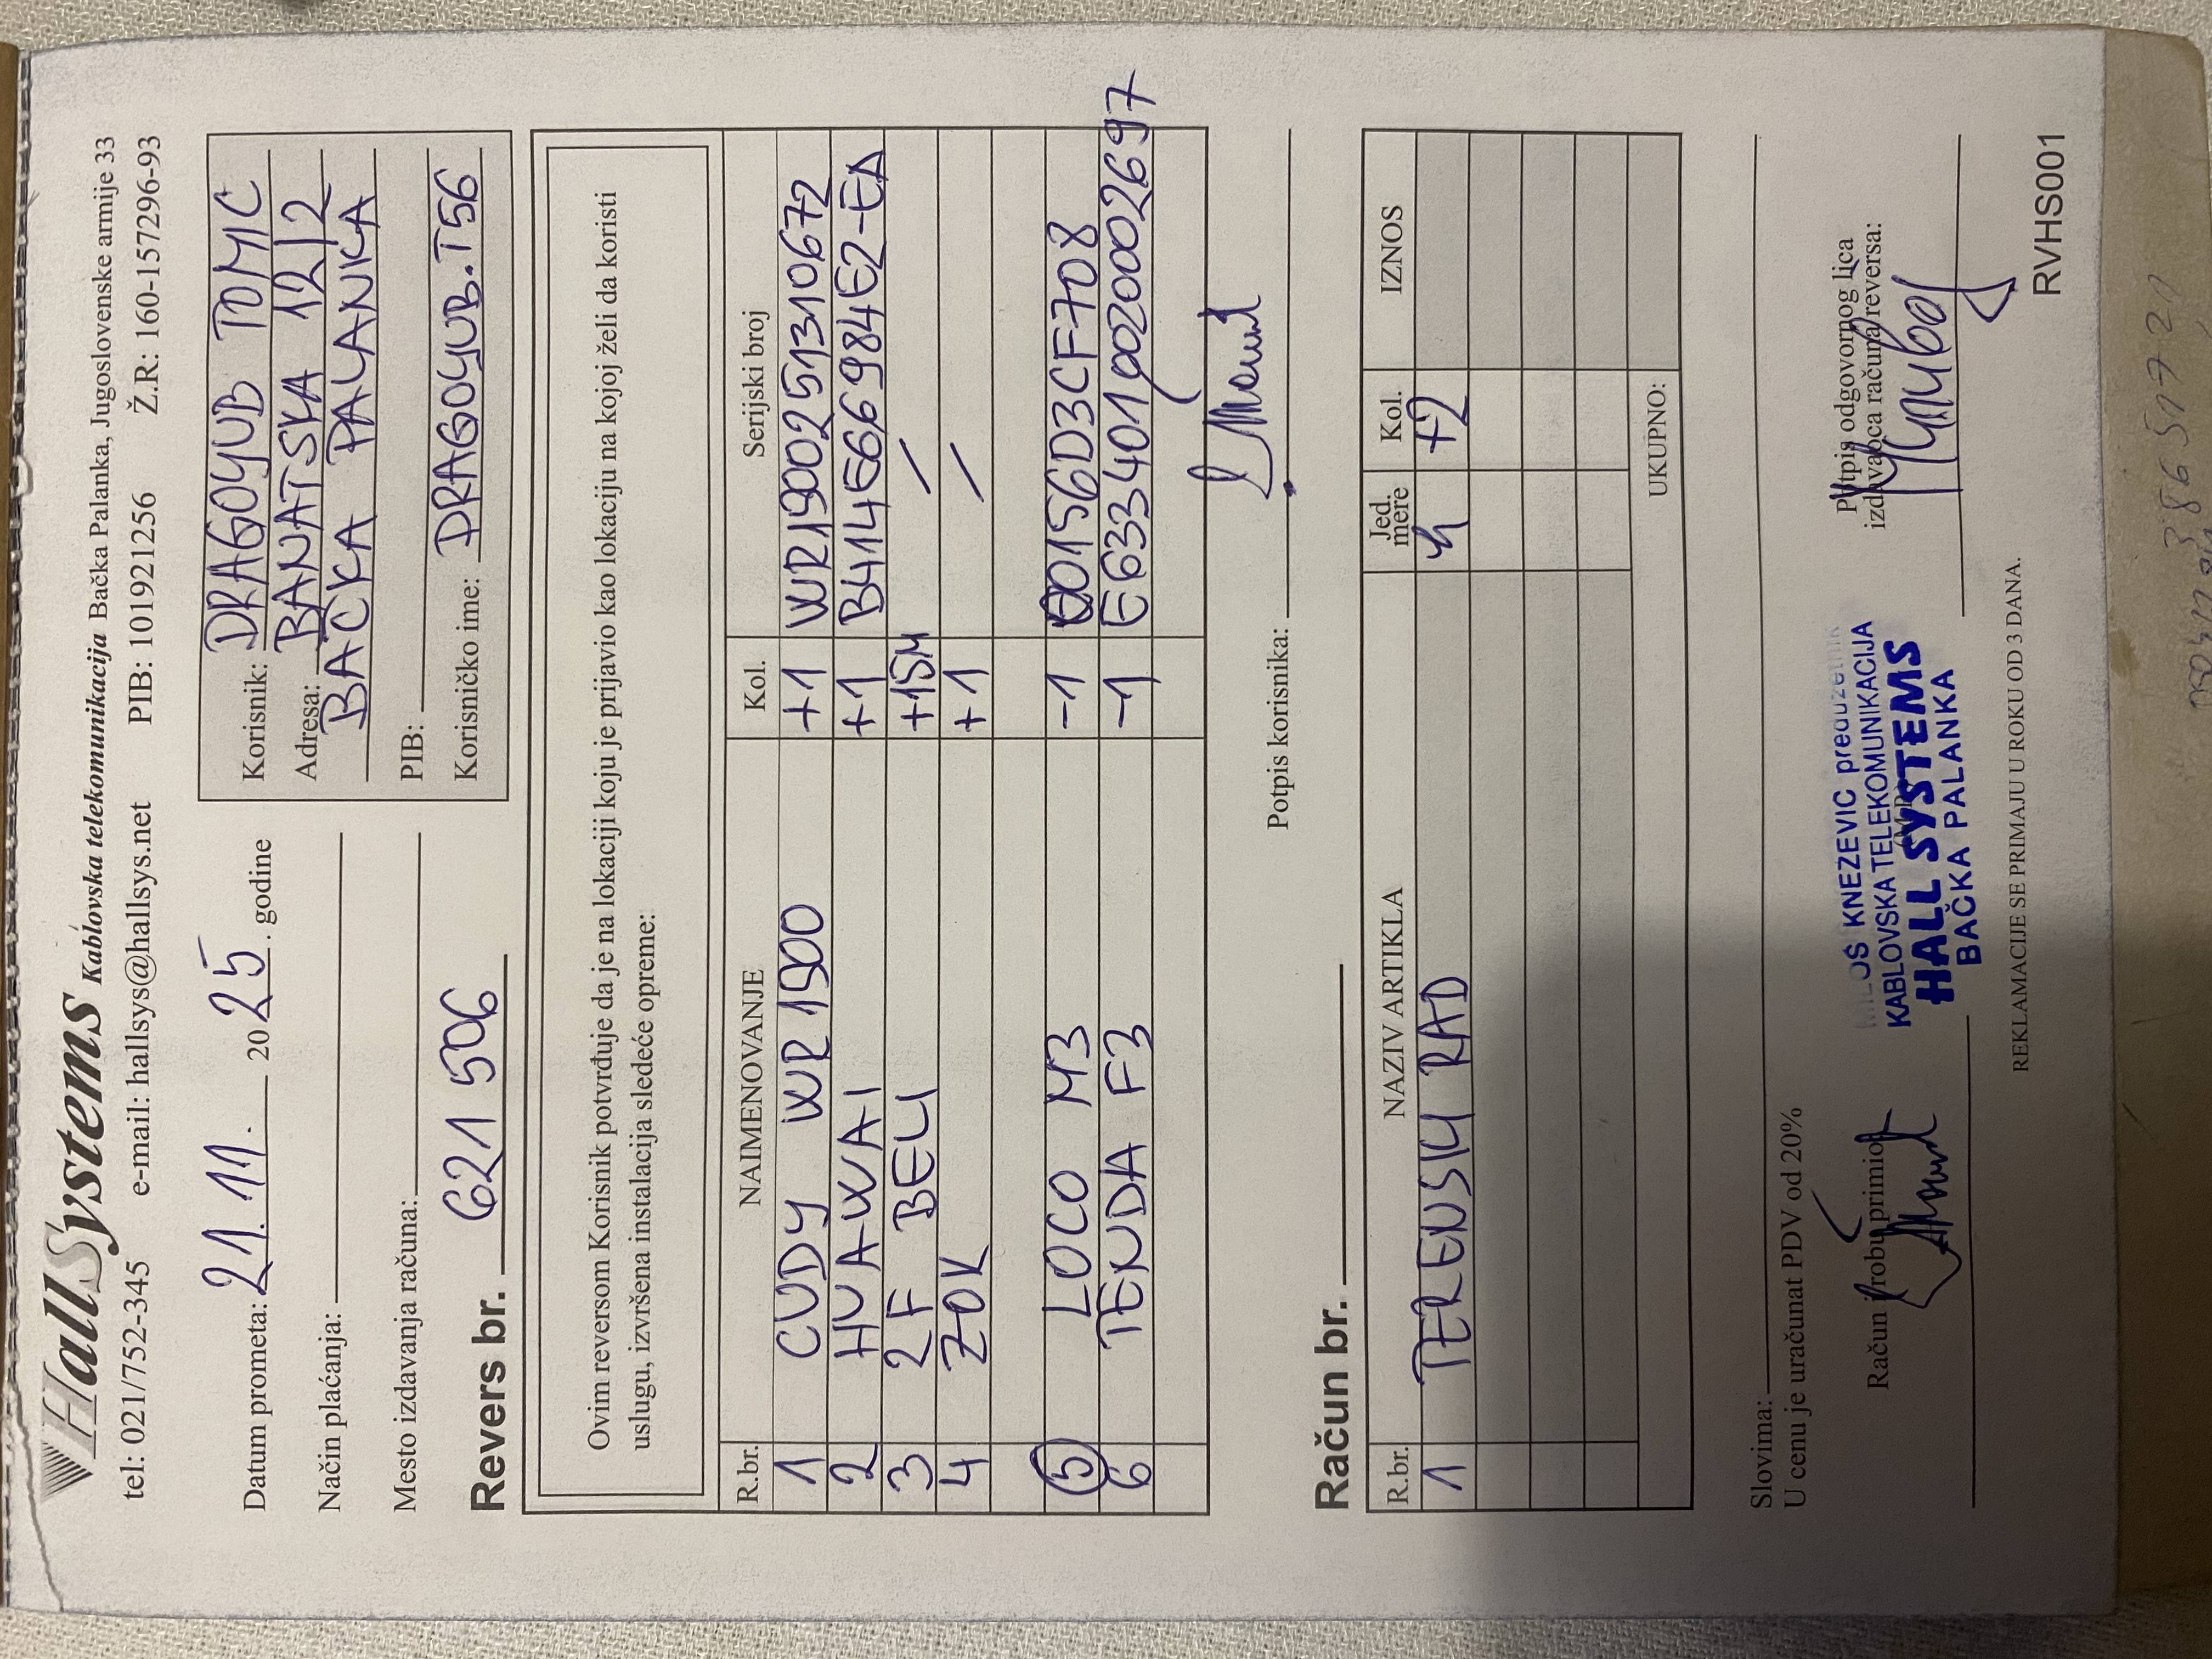 HallSystems Kablovska telekomunikacija Bačka Palanka, Jugoslovenske armije 33
tel: 021/752-345 e-mail: hallsys@hallsys.net PIB: 101921256 Ž.R: 160-157296-93
Datum prometa: 21.11. 2025. godine
Način plaćanja:
Mesto izdavanja računa:
Korisnik: DRAGOYUB TOMIC
Adresa: BANATSKA 12/2
BACKA PALANKA
PIB:
Korisničko ime: DRAGOYUB.T56
Revers br. 621 506
Ovim reversom Korisnik potvrđuje da je na lokaciji koju je prijavio kao lokaciju na kojoj želi da koristi
uslugu, izvršena instalacija sledeće opreme:
R.br. NAIMENOVANJE Kol. Serijski broj
1 CUDY WR 1300 +1 WR1300251310672
2 HUAWAI +1 B414E66984E2-EA
3 2F BELI +15M /
4 ZOK +1 /
5 LOCO M3 -1 00156D3CF708
6 TENDA F3 -1 E6334019020002697
Potpis korisnika:
Račun br.
R.br. NAZIV ARTIKLA Jed. mere Kol. IZNOS
1 TERENSKI RAD h +2
UKUPNO:
Slovima:
U cenu je uračunat PDV od 20%
Račun i robu primio
MILOŠ KNEZEVIC preduzetnik
KABLOVSKA TELEKOMUNIKACIJA
HALL SYSTEMS
BAČKA PALANKA
Potpis odgovornog lica
izdavaoca računa/reversa:
REKLAMACIJE SE PRIMAJU U ROKU OD 3 DANA.
RVHS001